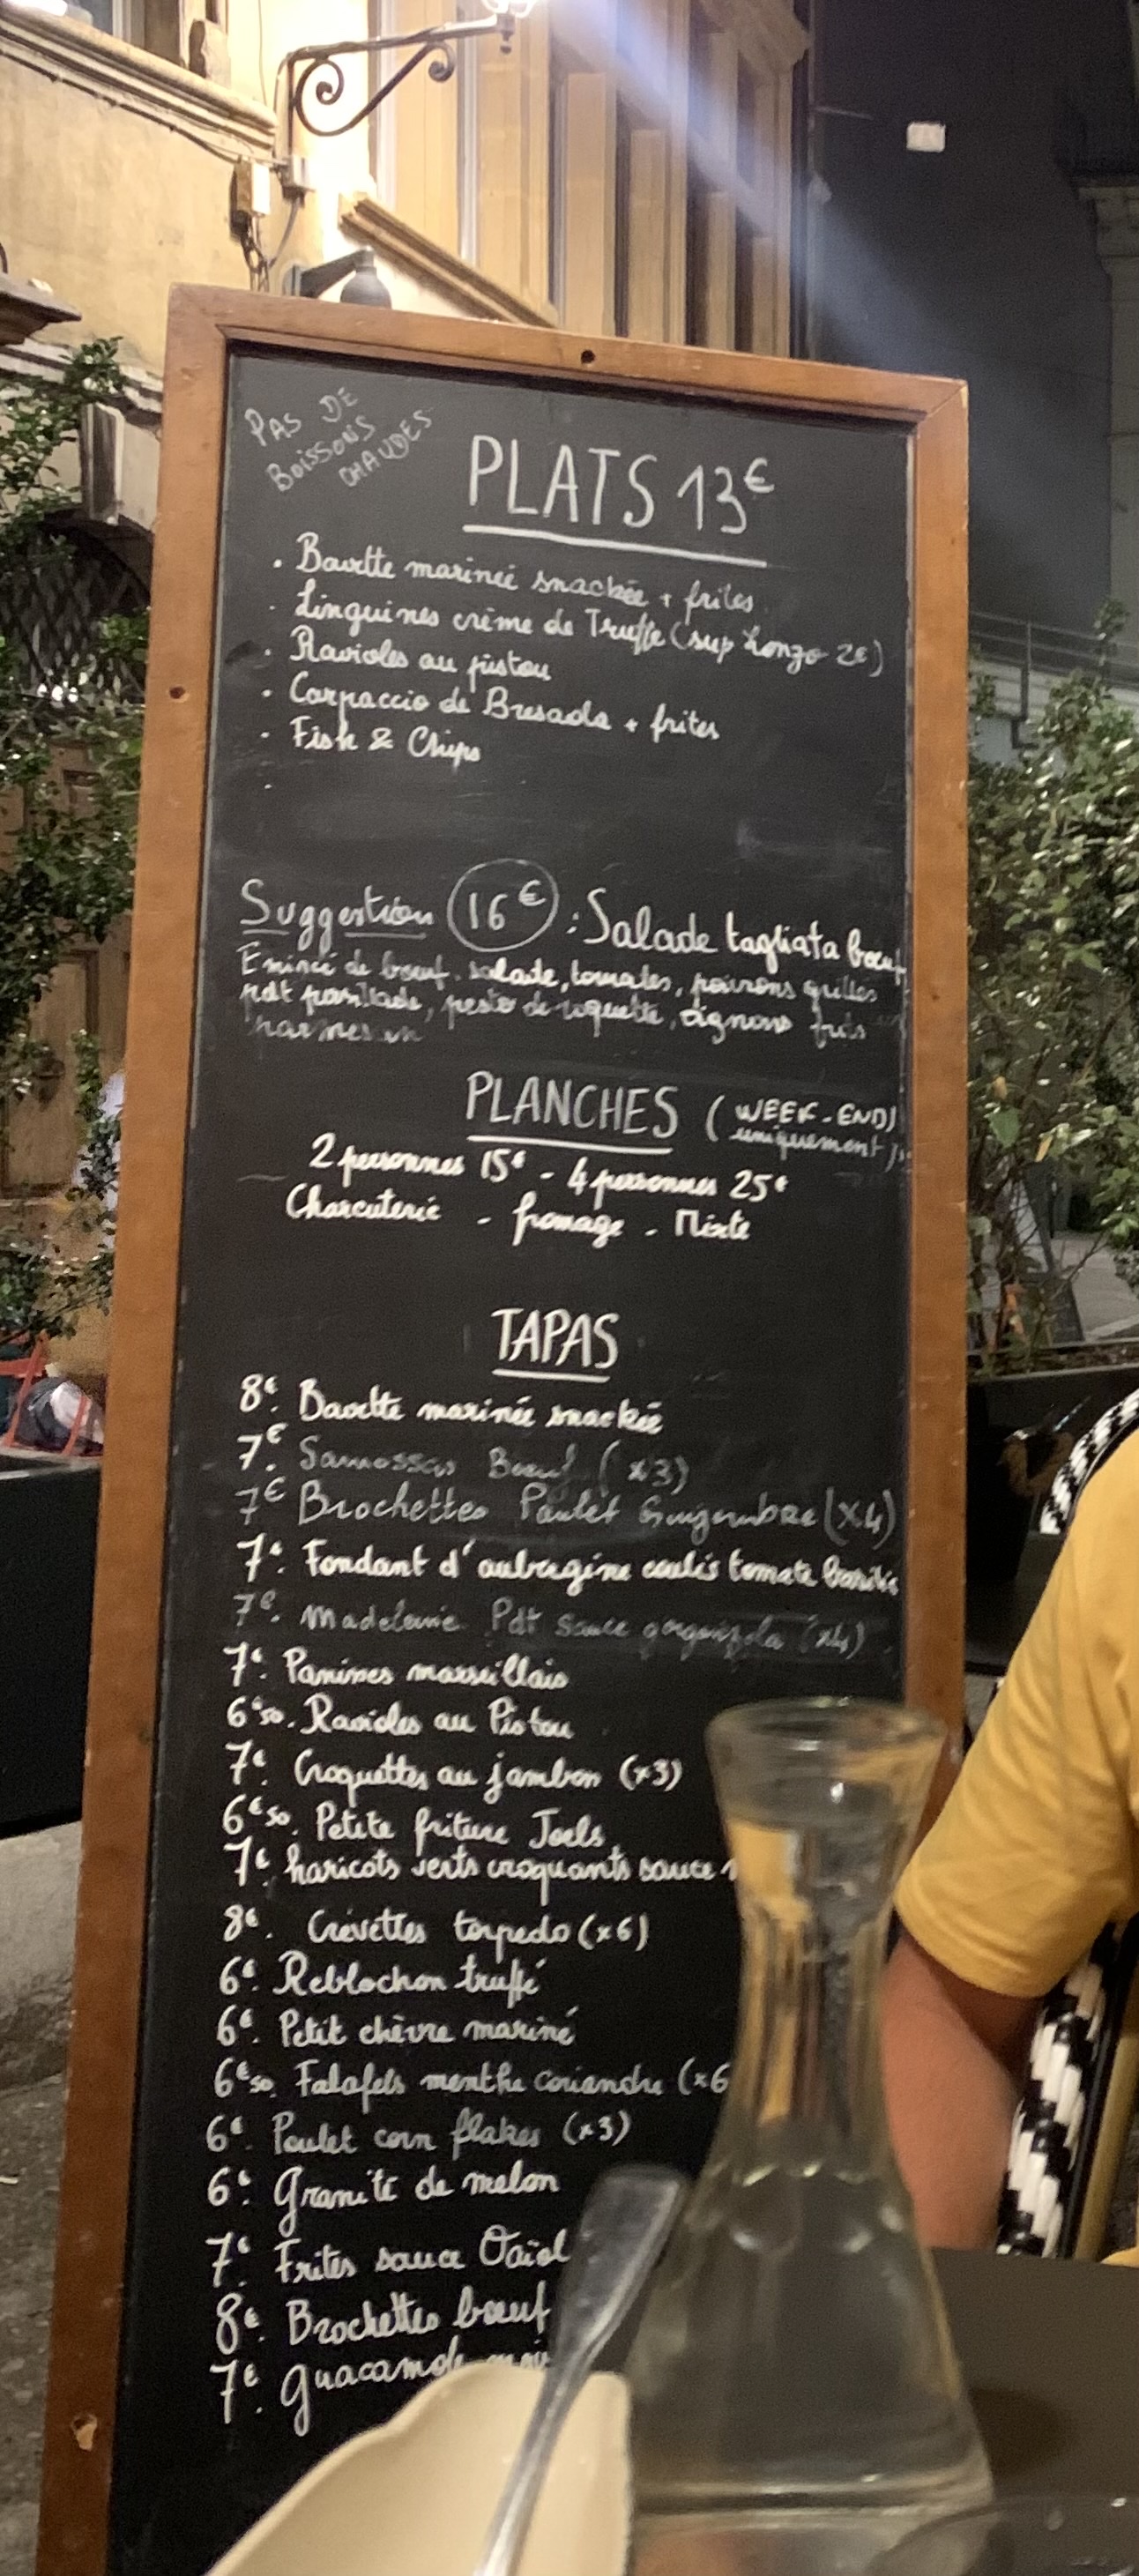 PAS DE
BOISSONS
CHAUDES
PLATS 13€
. Bavette marinée snackée + frites
. Linguines crème de Truffe (sup Lonzo 2€)
. Ravioles au pistou
. Carpaccio de Bresaola + frites
. Fish & Chips
.
Suggestion 16€ : Salade tagliata boeuf
Emincé de boeuf, salade, tomates, poivrons grillés
pdt persillade, pesto de roquette, oignons frits
parmesan
PLANCHES (WEEK-END)
uniquement)
2 personnes 15€ - 4 personnes 25€
Charcuterie - fromage - Mixte
TAPAS
8€. Bavette marinée snackée
7€. Samossas Boeuf (x3)
7€ Brochettes Poulet Gingembre (x4)
7€. Fondant d'aubergine coulis tomate basilic
7€. Madeleine Pdt sauce gorgonzola (x4)
7€. Panisses marseillais
6€50. Ravioles au Pistou
7€. Croquettes au jambon (x3)
6€50. Petite friture Joels
7€. haricots verts croquants sauce
8€. Crevettes torpedo (x6)
6€. Reblochon truffé
6€. Petit chèvre mariné
6€50. Falafels menthe coriandre (x6
6€. Poulet corn flakes (x3)
6€. Granité de melon
7€. Frites sauce
8€. Brochettes boeuf
7€. guacamole